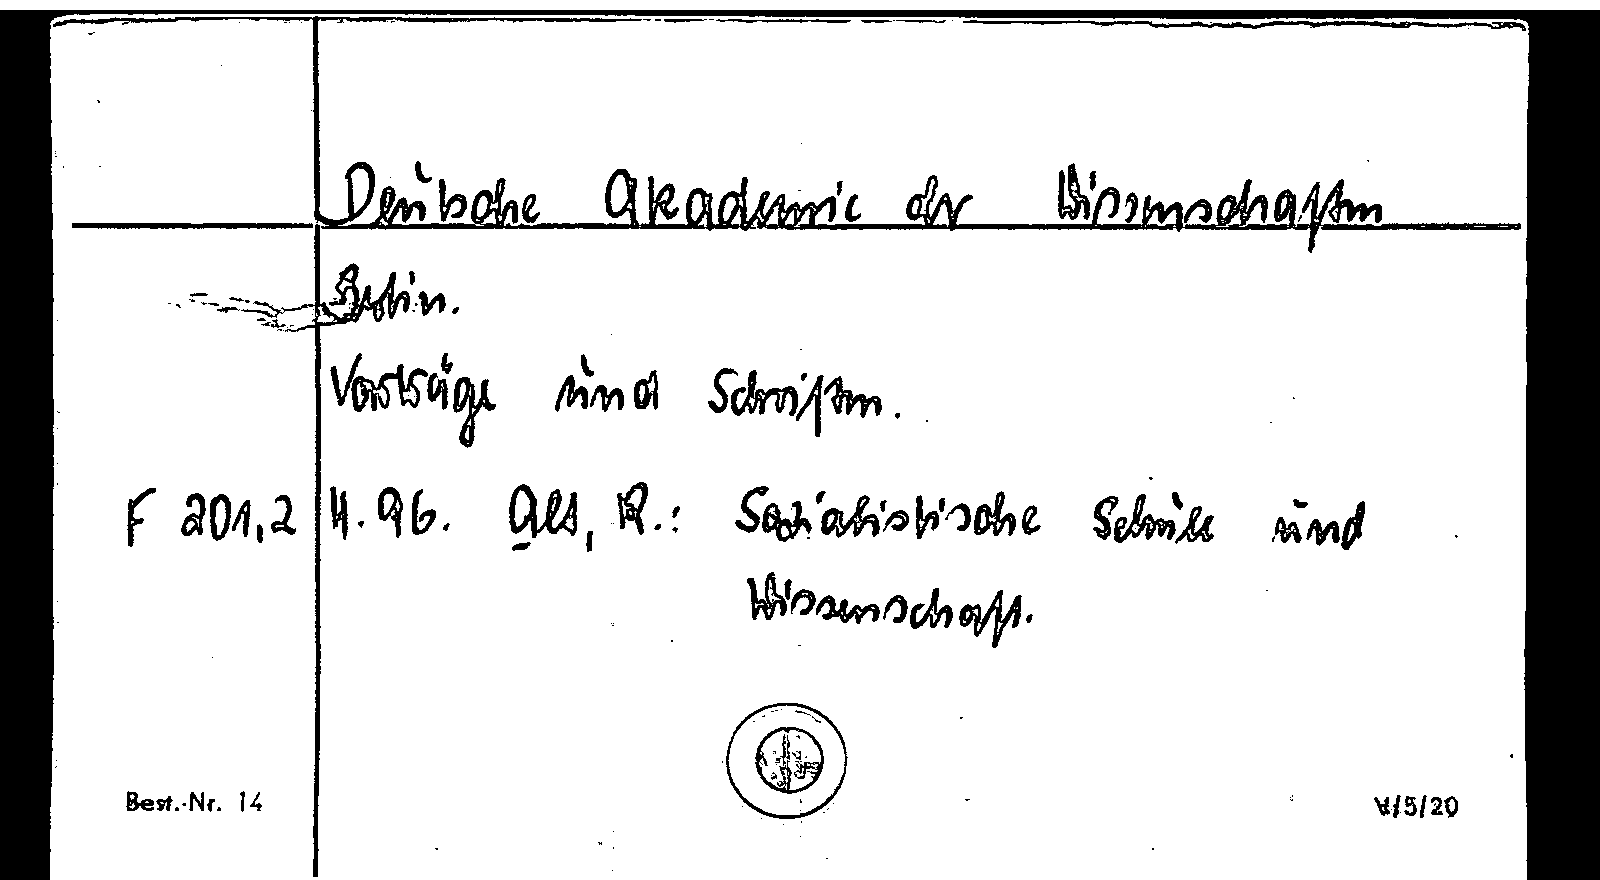 Deutsche Akademie der Wissenschaften
Berlin.
Vorträge und Schriften.
F 201,2 H. 96. Alt, R.: Sozialistische Schule und
Wissenschaft.
Best.-Nr. 14 V/5/20